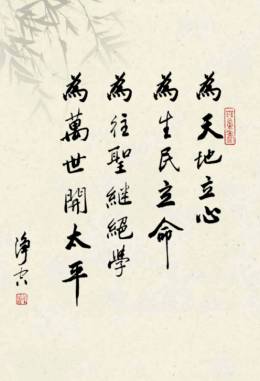 為天地立心
為生民立命
為往聖繼絕學
為萬世開太平
淨空